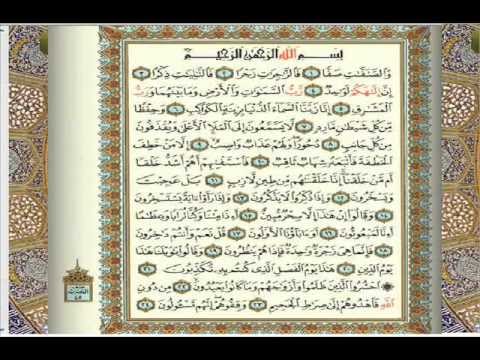 بِسْمِ اللَّهِ الرَّحْمَٰنِ الرَّحِيمِ
وَالصَّٰٓفَّٰتِ صَفًّا ١ فَالزَّٰجِرَٰتِ زَجْرًا ٢ فَالتَّٰلِيَٰتِ ذِكْرًا ٣
إِنَّ إِلَٰهَكُمْ لَوَٰحِدٌ ٤ رَّبُّ السَّمَٰوَٰتِ وَالْأَرْضِ وَمَا بَيْنَهُمَا وَرَبُّ
الْمَشَٰرِقِ ٥ إِنَّا زَيَّنَّا السَّمَآءَ الدُّنْيَا بِزِينَةٍ الْكَوَاكِبِ ٦ وَحِفْظًا
مِّن كُلِّ شَيْطَٰنٍ مَّارِدٍ ٧ لَّا يَسَّمَّعُونَ إِلَى الْمَلَإِ الْأَعْلَىٰ وَيُقْذَفُونَ
مِن كُلِّ جَانِبٍ ٨ دُحُورًا وَلَهُمْ عَذَابٌ وَاصِبٌ ٩ إِلَّا مَنْ خَطِفَ
الْخَطْفَةَ فَأَتْبَعَهُ شِهَابٌ ثَاقِبٌ ١٠ فَاسْتَفْتِهِمْ أَهُمْ أَشَدُّ خَلْقًا
أَم مَّنْ خَلَقْنَآ إِنَّا خَلَقْنَٰهُم مِّن طِينٍ لَّازِبٍ ١١ بَلْ عَجِبْتَ
وَيَسْخَرُونَ ١٢ وَإِذَا ذُكِّرُوا لَا يَذْكُرُونَ ١٣ وَإِذَا رَأَوْا ءَايَةً يَسْتَسْخِرُونَ
١٤ وَقَالُوٓا إِنْ هَٰذَآ إِلَّا سِحْرٌ مُّبِينٌ ١٥ أَءِذَا مِتْنَا وَكُنَّا تُرَابًا وَعِظَٰمًا
أَءِنَّا لَمَبْعُوثُونَ ١٦ أَوَءَابَآؤُنَا الْأَوَّلُونَ ١٧ قُلْ نَعَمْ وَأَنتُمْ دَٰخِرُونَ
١٨ فَإِنَّمَا هِيَ زَجْرَةٌ وَٰحِدَةٌ فَإِذَا هُمْ يَنظُرُونَ ١٩ وَقَالُوا يَٰوَيْلَنَا هَٰذَا
يَوْمُ الدِّينِ ٢٠ هَٰذَا يَوْمُ الْفَصْلِ الَّذِي كُنتُم بِهِ تُكَذِّبُونَ ٢١
احْشُرُوا الَّذِينَ ظَلَمُوا وَأَزْوَٰجَهُمْ وَمَا كَانُوا يَعْبُدُونَ ٢٢ مِن دُونِ
اللَّهِ فَاهْدُوهُمْ إِلَىٰ صِرَٰطِ الْجَحِيمِ ٢٣ وَقِفُوهُمْ إِنَّهُم مَّسْـُٔولُونَ ٢٤